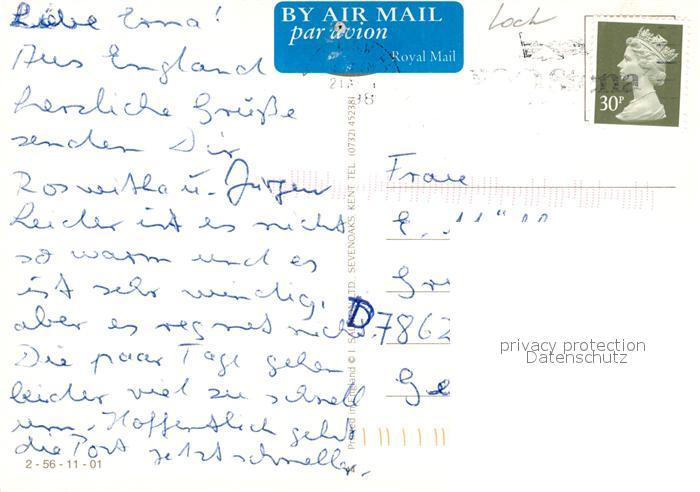 Liebe Erna!
Aus England
herzliche Grüße
senden Dir
Roswitha u. Jürgen
Leider ist es nicht
so warm und es
ist sehr windig,
aber es regnet nicht.
Die paar Tage gehen
leider viel zu schnell
um. Hoffentlich geht
die Post jetzt schneller.
2-56-11-01
BY AIR MAIL
par avion
Royal Mail
Loch
30P
Printed in England © J. SALMON LTD. SEVENOAKS, KENT TEL. (0732) 452381
Frau
E.
D7862
privacy protection
Datenschutz